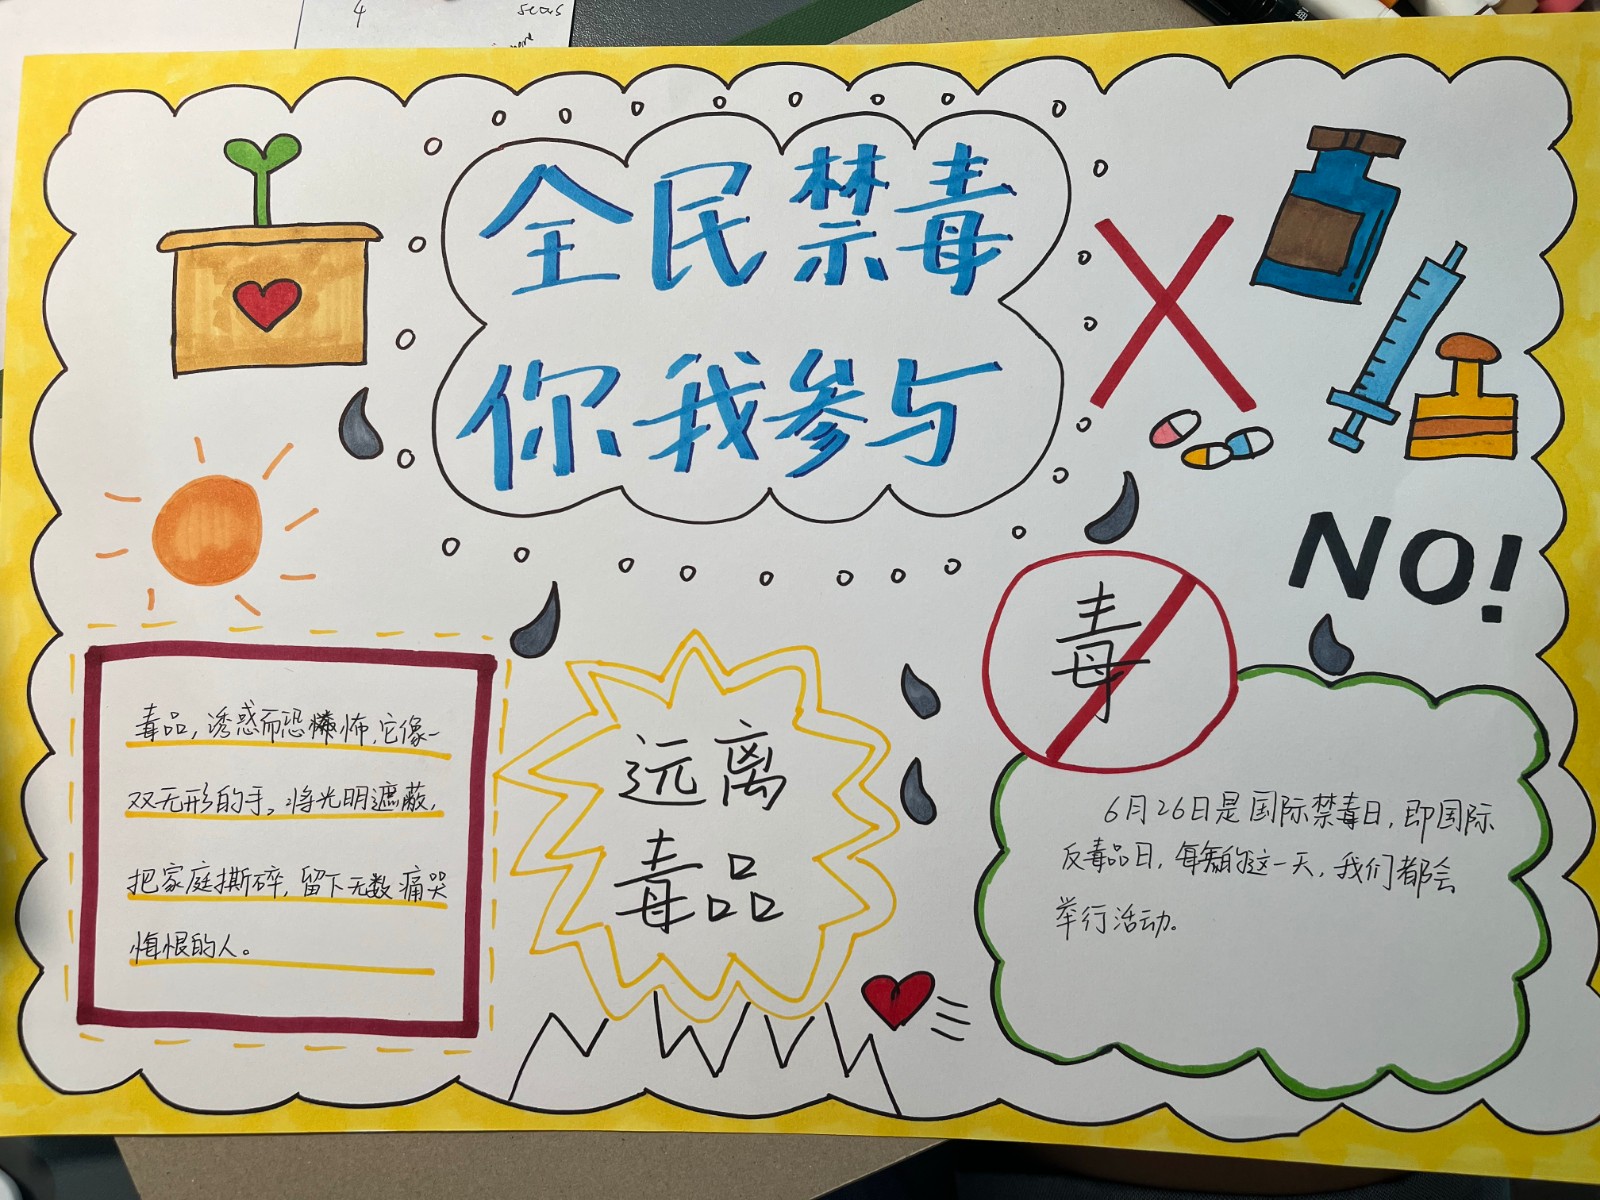 4
secs
全民禁毒
你我参与
NO!
毒
毒品,诱惑而恐怖,它像一
双无形的手,将光明遮蔽,
把家庭撕碎,留下无数痛哭
悔恨的人。
远离
毒品
6月26日是国际禁毒日,即国际
反毒品日,每年的这一天,我们都会
举行活动。